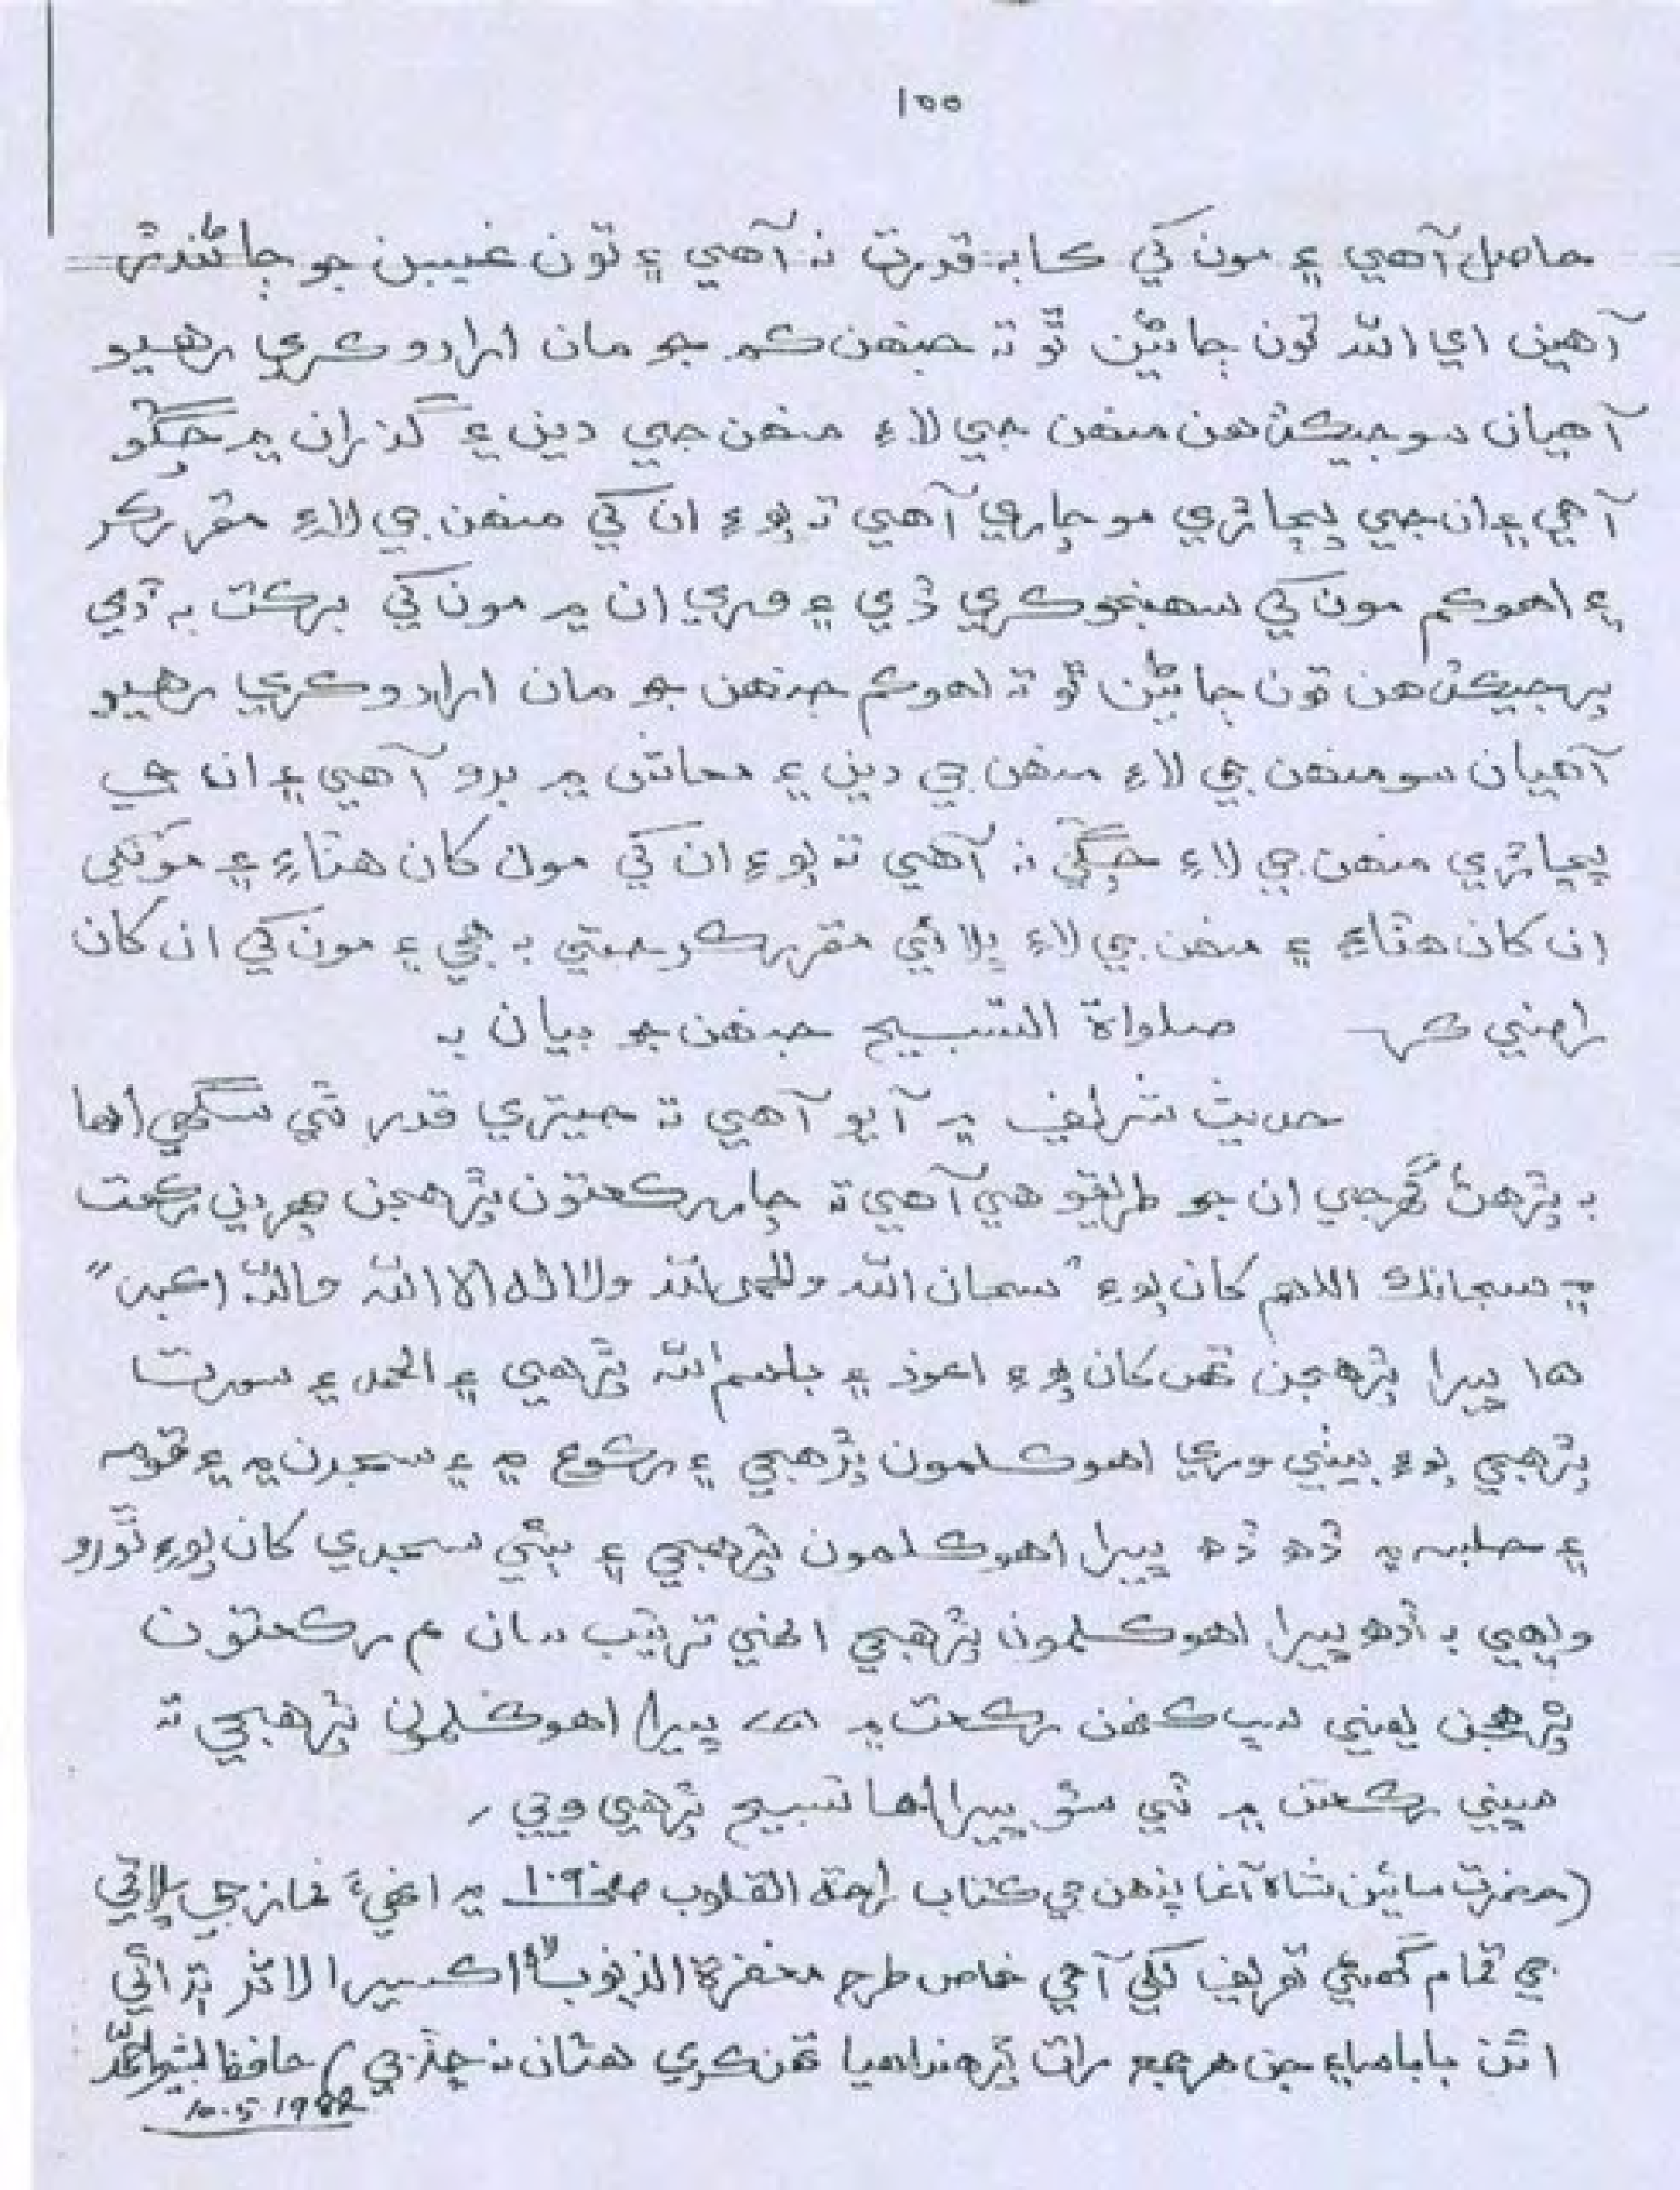 ١٥٥
حاصل آهي ۽ مون کي ڪا به قدرت نه آهي ۽ تون غيبن جو ڄاڻندڙ
آهين اي الله تون ڄاڻين ٿو ته جنهن ڪم جو مان ارادو ڪري رهيو
آهيان سو جيڪڏهن منهن جي لاءِ منهن جي دين ۽ گذران ۾ چڱو
آهي ۽ ان جي پڇاڙي موچاري آهي ته پوءِ ان کي منهن جي لاءِ مقرر ڪر
۽ اهو ڪم مون کي سهنجو ڪري ڏي ۽ وري ان ۾ مون کي برڪت به ڏي
پر جيڪڏهن تون ڄاڻين ٿو ته اهو ڪم جنهن جو مان ارادو ڪري رهيو
آهيان سو منهن جي لاءِ منهن جي دين ۽ معاش ۾ برو آهي ۽ ان جي
پڇاڙي منهن جي لاءِ چڱي نه آهي ته پوءِ ان کي مون کان هٽاءِ ۽ مونکي
ان کان هٽاءِ ۽ منهن جي لاءِ ڀلائي مقرر ڪر جتي به هجي ۽ مون کي ان کان
راضي ڪر صلواة التسبيح جنهن جو بيان ۾
حديث شريف ۾ آيو آهي ته جيتري قدر ٿي سگهي اها
به پڙهڻ گهرجي ان جو طريقو هي آهي ته چار رڪعتون پڙهجن هر ڪنهن رڪعت
۾ سبحانڪ اللهم کان پوءِ "سبحان الله والحمد لله ولا اله الا الله والله اڪبر"
١٥ ڀيرا پڙهجن تنهن کان پوءِ اعوذ ۽ بلسم الله پڙهي ۽ الحمد ۽ سورت
پڙهجي پوءِ بيٺي وري اهو ڪلمون پڙهجي ۽ رڪوع ۾ ۽ سجدن ۾ ۽ قومه
۽ جلسه ۾ ڏهه ڏهه ڀيرا اهو ڪلمون پڙهجي ۽ ٻئي سجدي کان پوءِ ٿورو
ويهي به ڏهه ڀيرا اهو ڪلمون پڙهجي انهي ترتيب سان ۴ رڪعتون
پڙهجن يعني سڀ ڪنهن رڪعت ۾ ٧٥ ڀيرا اهو ڪلمون پڙهجي ته
مڙني رڪعتن ۾ ٽي سؤ ڀيرا اها تسبيح پڙهي ويئي ،
(حضرت سائين شاه آغا پنهن جي ڪتاب راحة القلوب صفحو ١٠٩ ۾ انهيءَ نماز جي ڀلائي
جي تمام گهڻي تعريف ڪئي آهي خاص طرح مغفرة الذنوب ۾ اڪسير الاثر
اٿن بابا سائين جن هر جمع رات پڙهندا هيا تنهن ڪري هٿان نه ڇڏجي) حافظ بشير احمد
10.5.1982